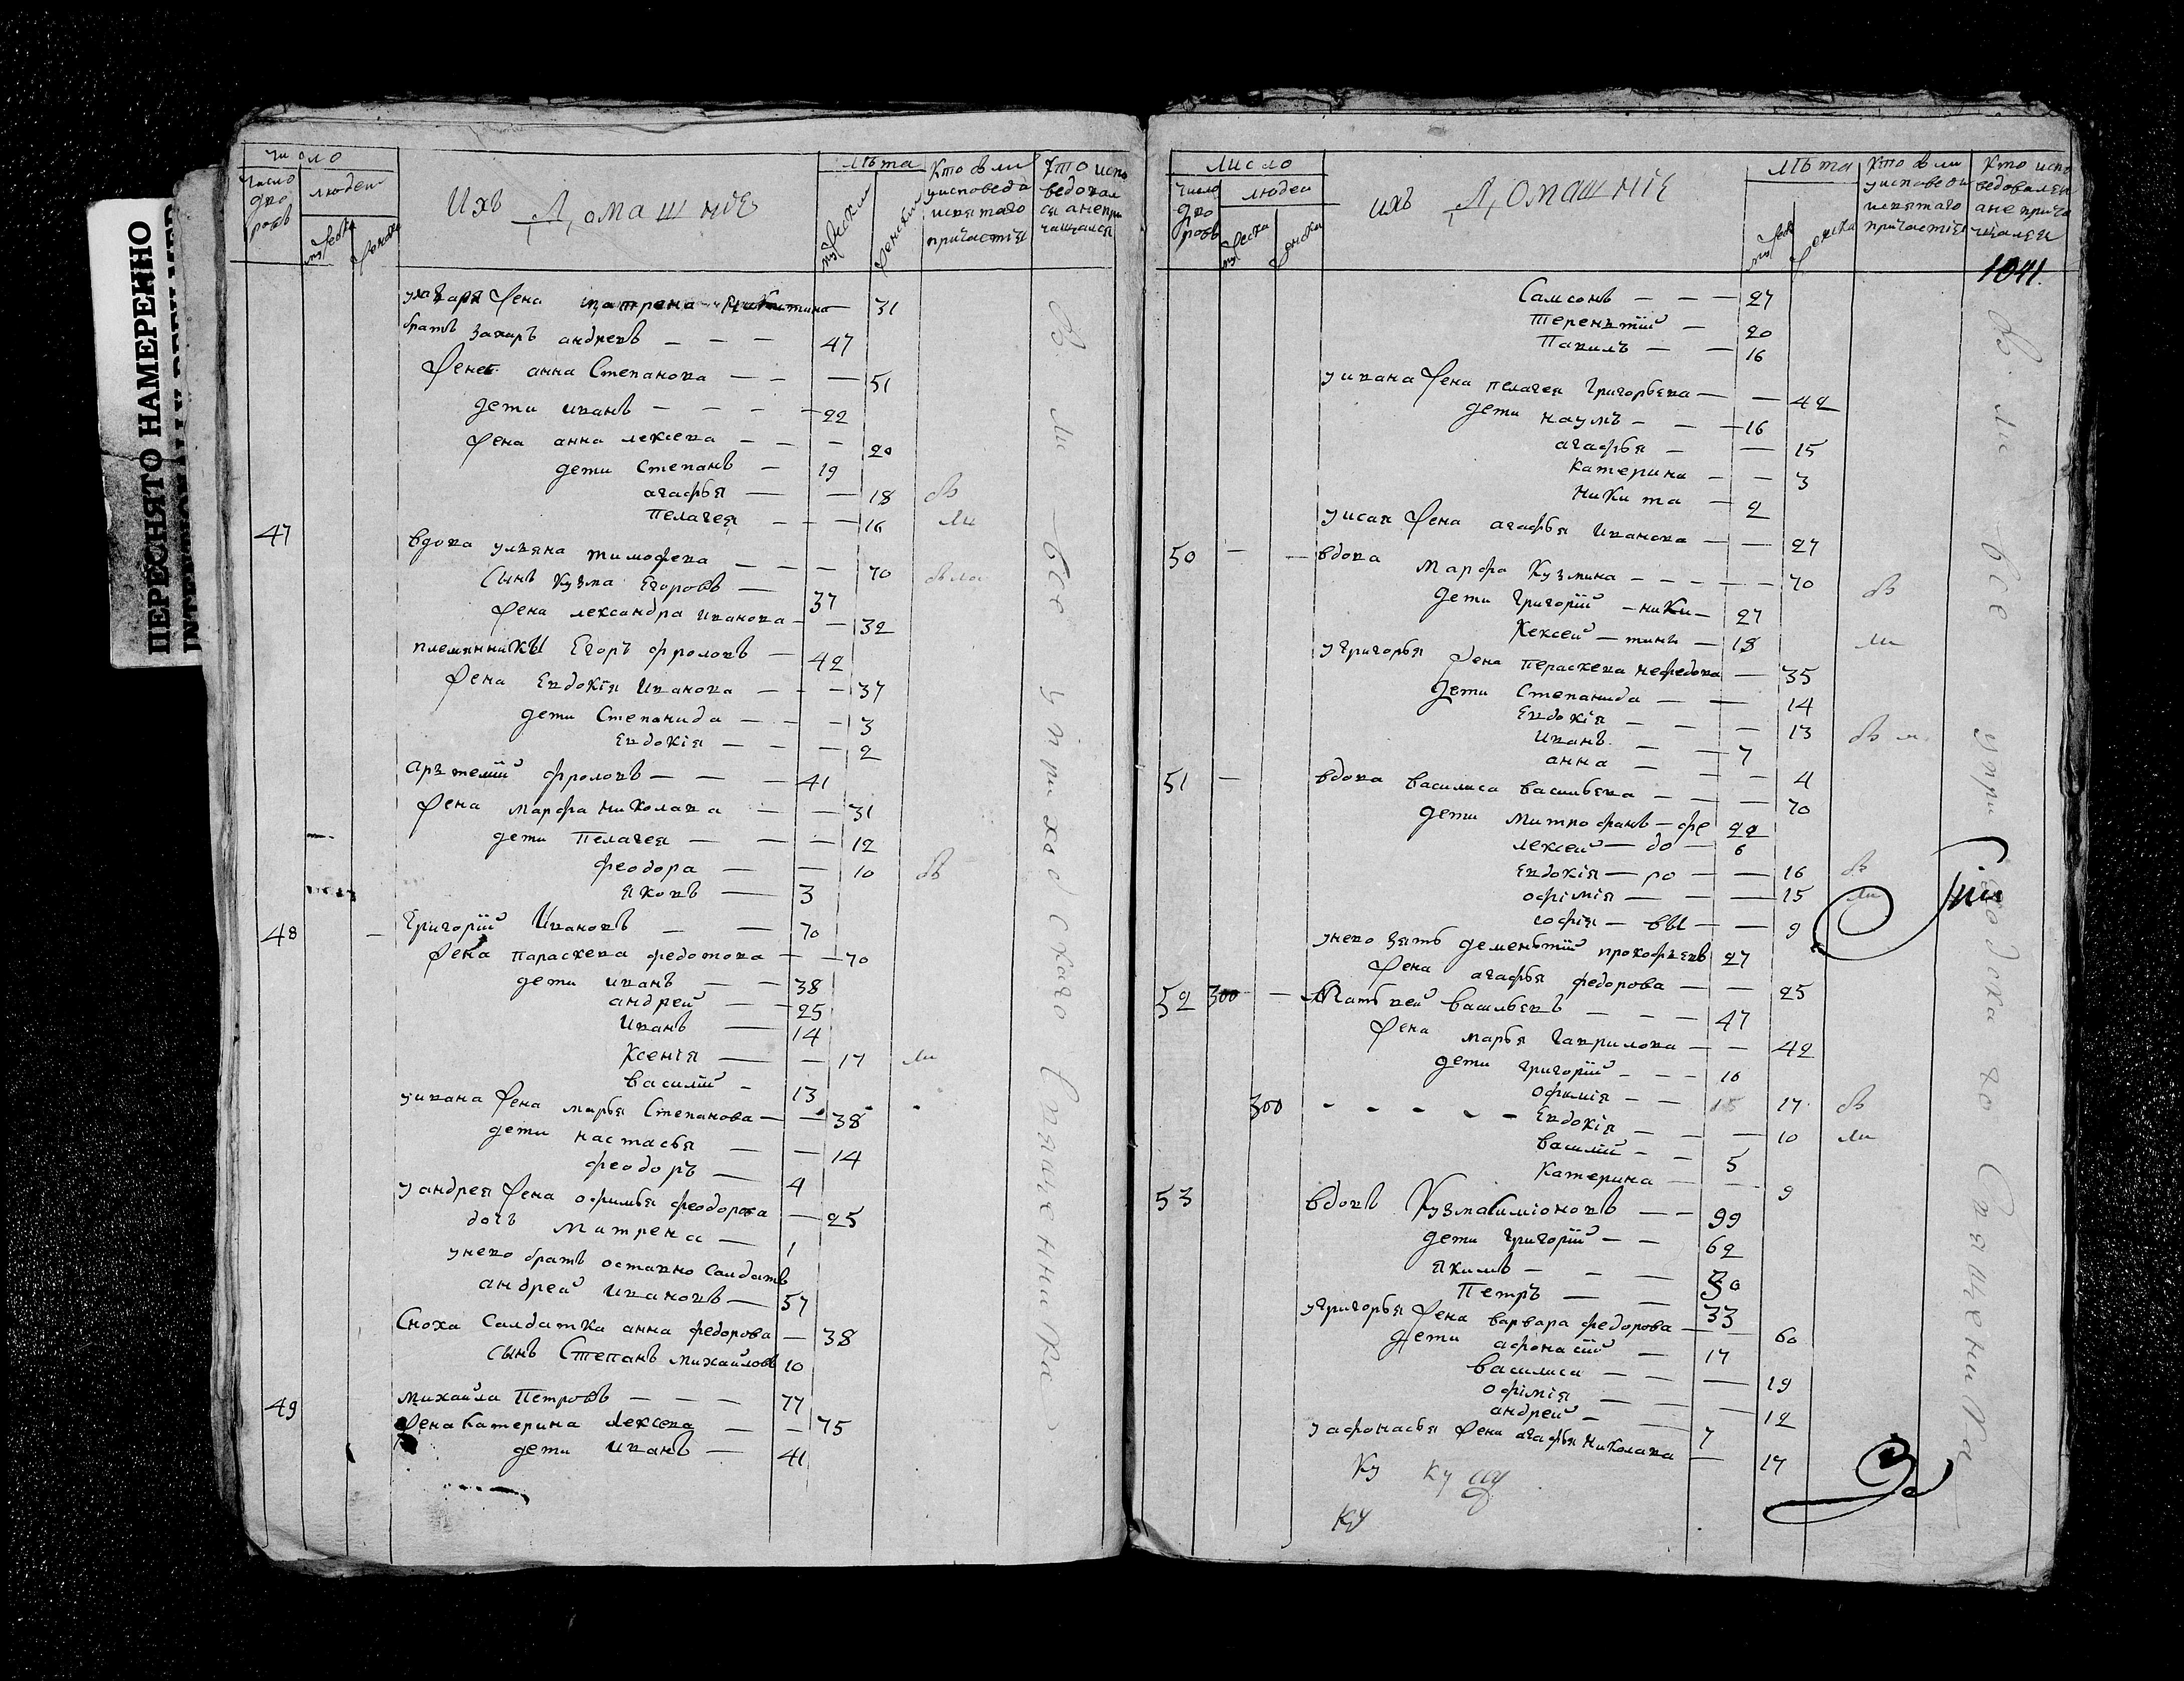 ПЕРЕСНЯТО НАМЕРЕННО
число
число дворовъ
людей
мужеска
женска
Ихъ Домашние
лѣта
мужески
женски
Кто были
у исповеди
и святаго
причастия
кто испо
ведовал
ся а не при
чащался
у лазаря жена матрена никитина — 31
братъ Захаръ андреевъ — — — 47
жена анна Степанова — — — 51
дети иванъ — — — — 22
жена анна лексеева — — — 20
дети Степанъ — 19
агафья — — 18 бы
Пелагея — — — 16 ли
47 вдова ульяна тимофеева — — — 70 были
сынъ кузма Егоровъ — 37
жена лександра иванова — — 32
племянникъ Егоръ фроловъ — 42
жена Евдокія Иванова — — — 37
дети Степанида — — — 3
Евдокія — — — 2
артемій фроловъ — — — 41
жена марфа николаева — — 31
дети Пелагея — — — 12
феодора — — 10 бы
яковъ — 3
48 — Григорій Ивановъ — — 70
жена параскева федотова — — 70
дети иванъ — — 38
андрей — — 25
Иванъ — 14
Ксенія — — 17 ли
василій — 13
у ивана жена марья Степанова — — 38
дети настасья — — 14
феодоръ — 4
у андрея жена офимья феодорова — 25
дочь Матрена — 1
у нево братъ оставно Солдатъ
андрей ивановъ — 57
Сноха Салдатка анна федорова — 38
сынъ Степанъ михайловъ 10
49 михайла Петровъ — — — 77
жена катерина лексеева — — 75
дети иванъ — 41
бы ли все у приходскаго священника
число
число дворовъ
людей
мужеска
женска
ихъ Домашніе
лѣта
муже
женска
Кто были
у исповеди
и святаго
причастія
Кто испо
ведовался
а не прича
щался
1041.
Самсонъ — — — 27
Терентій — 20
Павилъ — — 16
у ивана жена пелагея Григорьева — — 42
дети наумъ — — — 16
агафья — — 15
катерина — — 3
никита — 2
у исая жена агафья иванова — — 27
50 — — вдова марфа Кузмина — — — — — 70 бы
дети Григорій — ники — 27
Лексей — тины — 18 ли
у григорья жена Пераскева нефедова — 35
дети Степанида — — 14
Евдокія — — — 13 бы ли
иванъ — — 7
анна — — — 4
51 — вдова василиса васильева — — — 70
дети митрофанъ — фе 22
лексей — до — 6
Евдокія — ро — — 16 бы
офімія — — — 15 ли
софія — вы — — 9
у нево зять дементій прокофьевъ 27
жена агафья федорова — — 25
52 300 — Матвей васильевъ — — — 47
жена марья гаврилова — — 42
дети григорій — — — 16
офимия — — 15 17 бы
300 — — — — — Евдокія — — — 10 ли
василій — — 5
катерина — — 9
53 вдовъ Кузма Симіоновъ — — 99
дети григорій — — 62
якимъ — — — 30
Петръ — — 33
у григорья жена варвара федорова — — 60
дети афонасій — 17
василиса — — — 19
офімія — — — 12
андрей — — 7
у афонасья жена агафья николаева — 17
ку ку
ку
бы ли все у приходскаго Священника